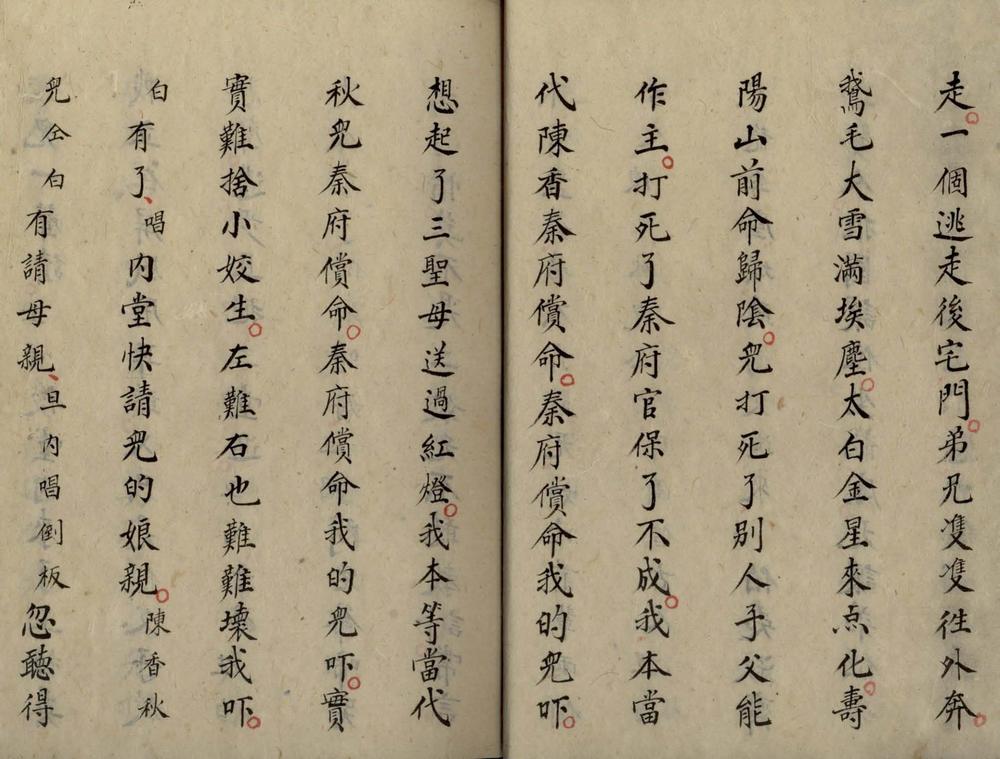 走。一個逃走後宅門。弟兄䨇䨇徃外奔。
鵞毛大雪滿埃塵。太白金星來点化。壽
陽山前命歸陰。兒打死了别人子父能
作主。打死了秦府官保了不成。我本當
代陳香秦府償命。秦府償命我的兒吓。
想起了三聖母送過紅燈。我本等當代
秋兒秦府償命。秦府償命我的兒吓。實
實難捨小姣生。左難右也難難壞我吓。
白有了、唱内堂快請兒的娘親。陳香秋
兒仝白有請母親、旦内唱倒板忽聽得